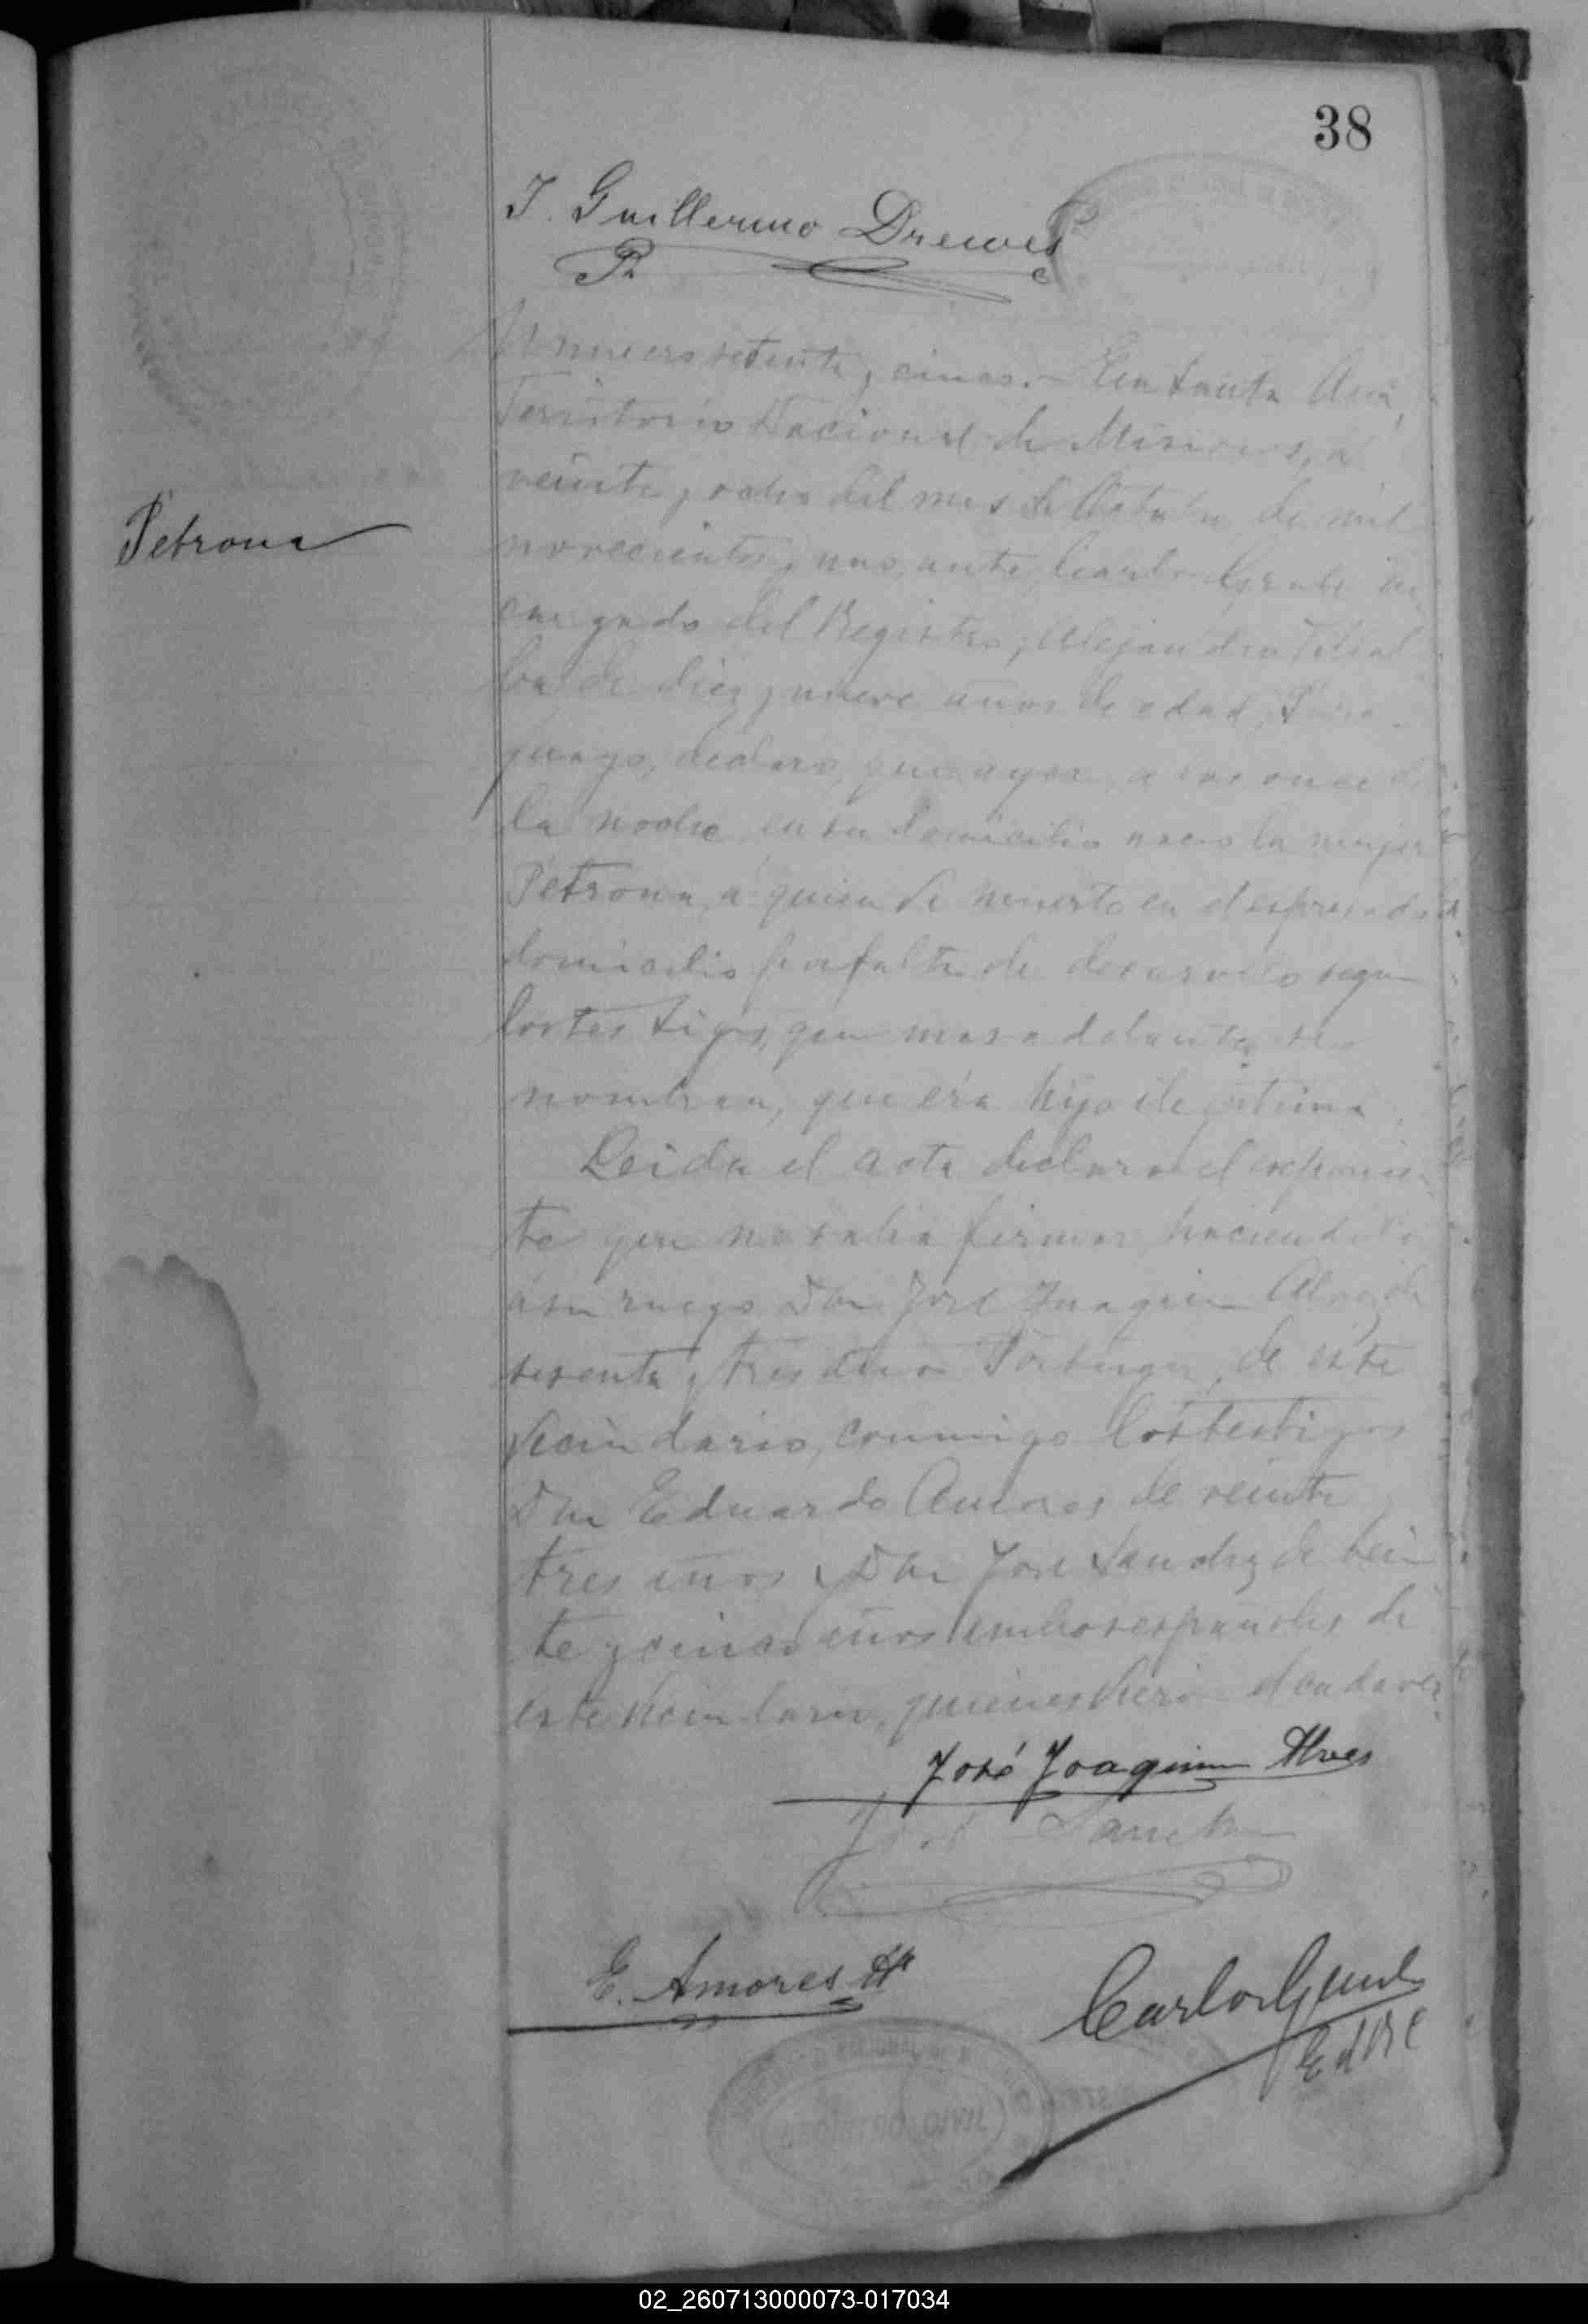 38
T. Guillermo Drewes
Petrona
Numero setenta y cinco.- En Santa Ana,
Territorio Nacional de Misiones, a
veinte y ocho del mes de Octubre de mil
novecientos y uno, ante Carlos
cargado del Registro, Alejandro
ba de diez y nueve años de edad, Para-
guayo, declaro, que ayer a las once de
la noche en su domicilio nacio la mujer
Petrona, a quien dé muerto en el espresado
domicilio por falta de desarollo segun
los testigos, que mas adelante se
nombran, que era hijo ilegitima
Leida el acta declaro el exponen-
te que no sabia firmar haciendolo
á su ruego Don José Joaquin Alves de
sesenta y tres años Portugues, de este
vecindario, conmigo los testigos
Don Eduardo Amores de veinte
tres años y Don José Sanchez de vein
te y cinco años ambos españoles de
este vecindario, quienes viero el cadaver
José Joaquim Alves
José Sanchez
E. Amores
Carlos
E del R C
REGISTRO CIVIL
02_260713000073-017034